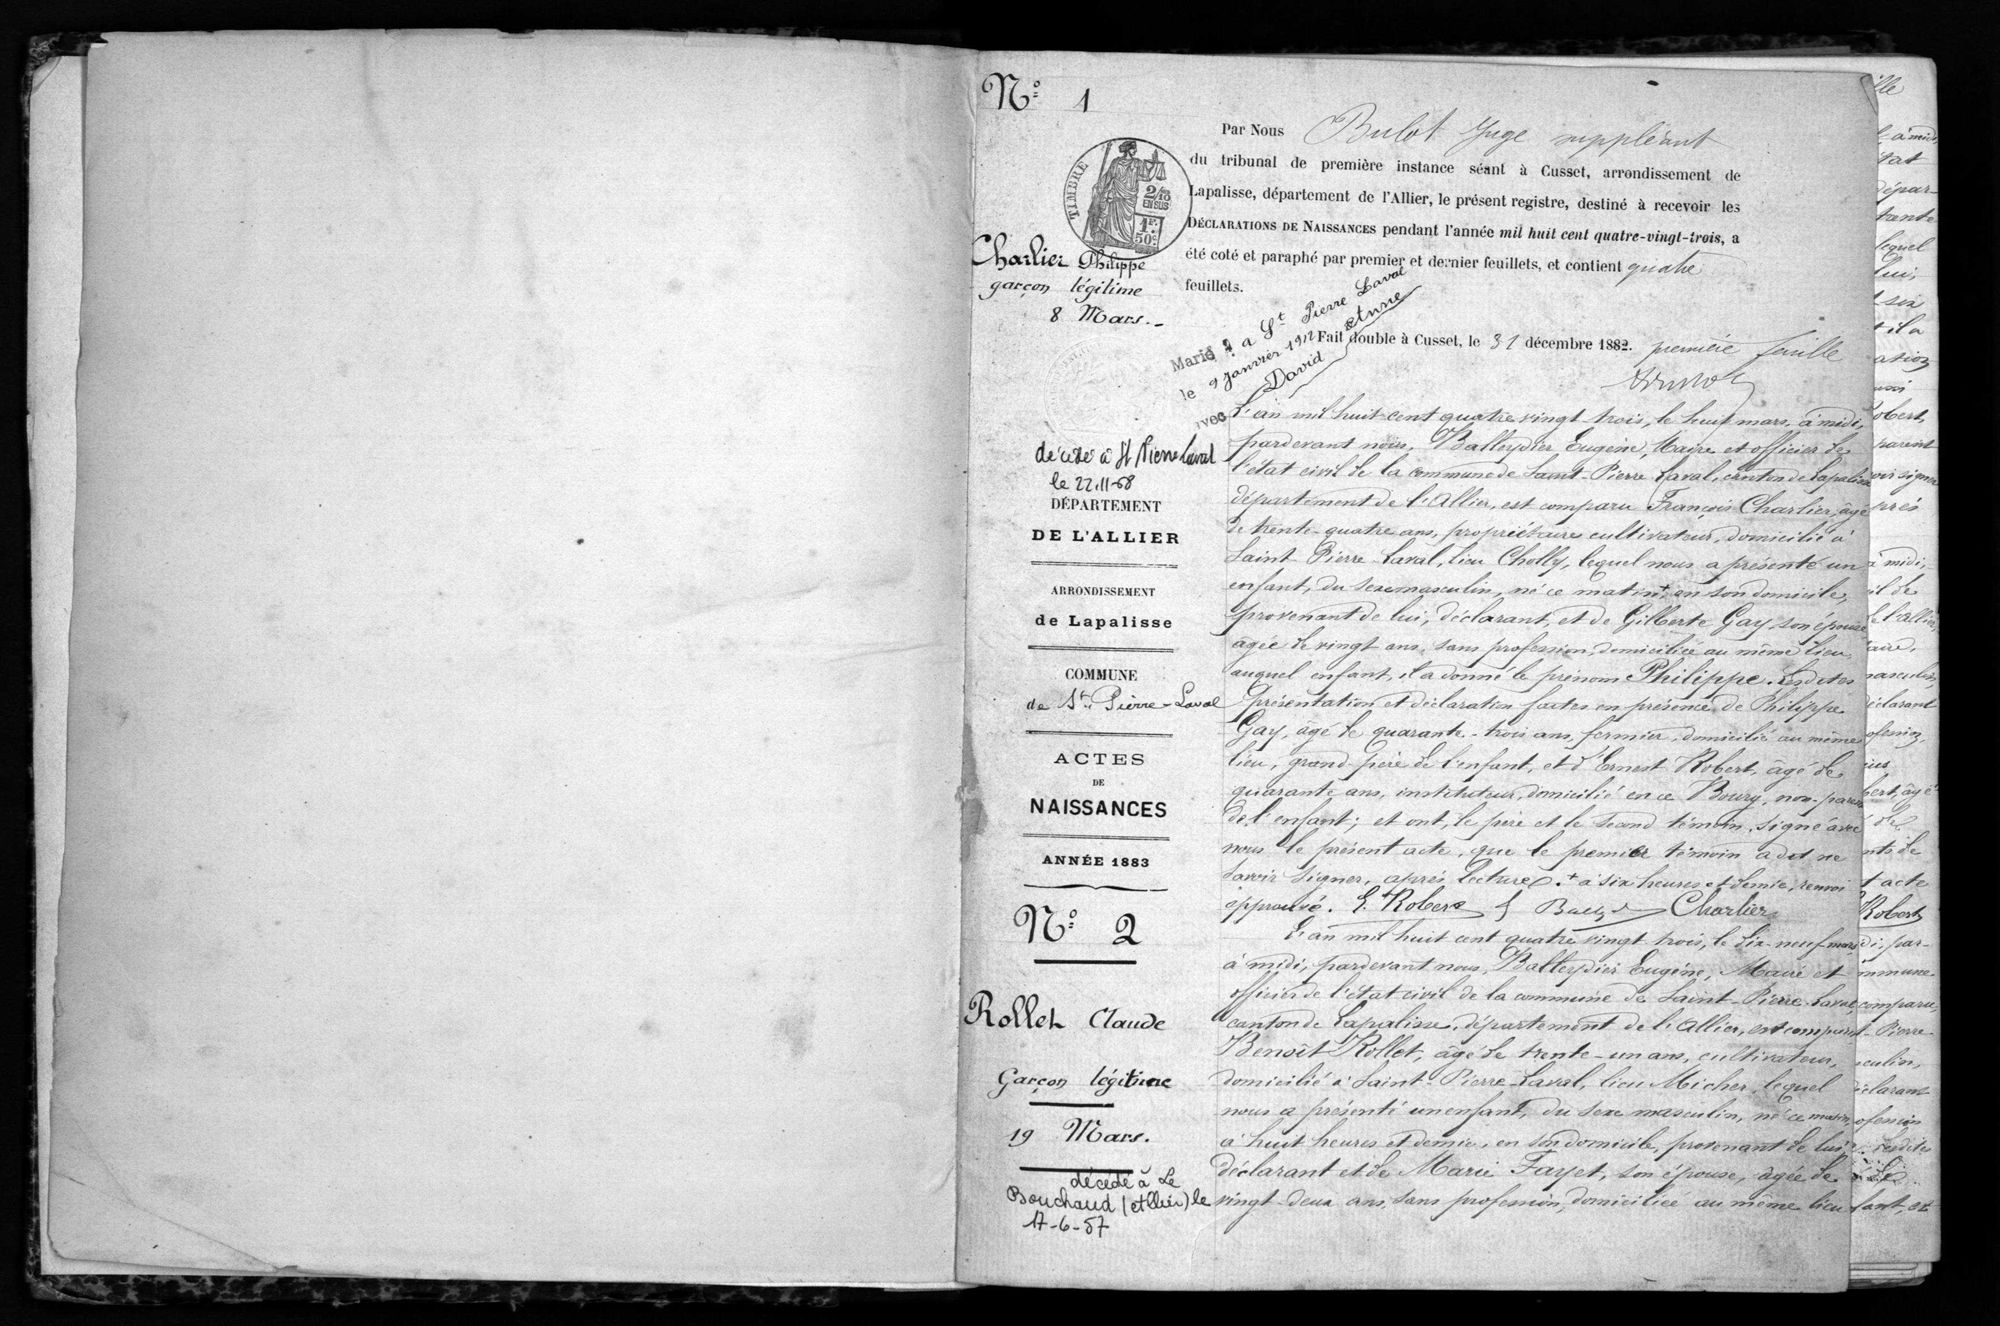 N° 1
Par Nous Bulot Juge suppléant
du tribunal de première instance séant à Cusset, arrondissement de
Lapalisse, département de l'Allier, le présent registre, destiné à recevoir les
DÉCLARATIONS DE NAISSANCES pendant l'année mil huit cent quatre-vingt-trois, a
été coté et paraphé par premier et dernier feuillets, et contient quatre
feuillets.
Fait double à Cusset, le 31 décembre 1882.
première feuille
TIMBRE
2/10
EN SUS
1F.
50c
Charlier Philippe
garçon légitime
8 Mars.
Marié à St Pierre Laval
le 9 Janvier 1912
avec David
décédé à St Pierre Laval
le 22-11-68
DÉPARTEMENT
DE L'ALLIER
ARRONDISSEMENT
de Lapalisse
COMMUNE
de St Pierre-Laval
ACTES
DE
NAISSANCES
ANNÉE 1883
L'an mil huit cent quatre vingt trois, le huit mars, à midi,
pardevant nous, Balleydier Eugène, Maire et officier de
l'état civil de la commune de Saint-Pierre Laval, canton de Lapalisse
département de l'Allier, est comparu François Charlier, âgé
de trente-quatre ans, propriétaire cultivateur, domicilié à
Saint Pierre Laval, lieu Cholly, lequel nous a présenté un
enfant, du sexe masculin, né ce matin + en son domicile,
provenant de lui, déclarant, et de Gilberte Gay, son épouse
âgée de vingt ans, sans profession, domiciliée au même lieu
auquel enfant, il a donné le prénom Philippe. Lesdites
présentation et déclaration faites en présence de Philippe
Gay, âgé de quarante-trois ans, fermier, domicilié au même
lieu, grand-père de l'enfant, et d'Ernest Robert, âgé de
quarante ans, instituteur, domicilié en ce Bourg, non-parent
de l'enfant; et ont, le père et le second témoin, signé avec
nous le présent acte, que le premier témoin a dit ne
savoir signer, après lecture. + à six heures et demie, renvoi
approuvé. E. Robert Charlier
N° 2
Rollet Claude
Garçon légitime
19 Mars.
décédé à Le
Bouchaud (Allier) le
17-6-57
L'an mil huit cent quatre vingt trois, le dix-neuf mars
à midi, pardevant nous, Balleydier Eugène, Maire et
officier de l'état civil de la commune de Saint-Pierre-Laval
canton de Lapalisse, département de l'Allier, est comparu
Benoît Rollet, âgé de trente-un ans, cultivateur,
domicilié à Saint-Pierre-Laval, lieu Micher, lequel
nous a présenté un enfant, du sexe masculin, né ce matin,
à huit heures et demie, en son domicile, provenant de lui
déclarant et de Marie Fayet, son épouse, âgée de
vingt-deux ans, sans profession, domiciliée au même lieu